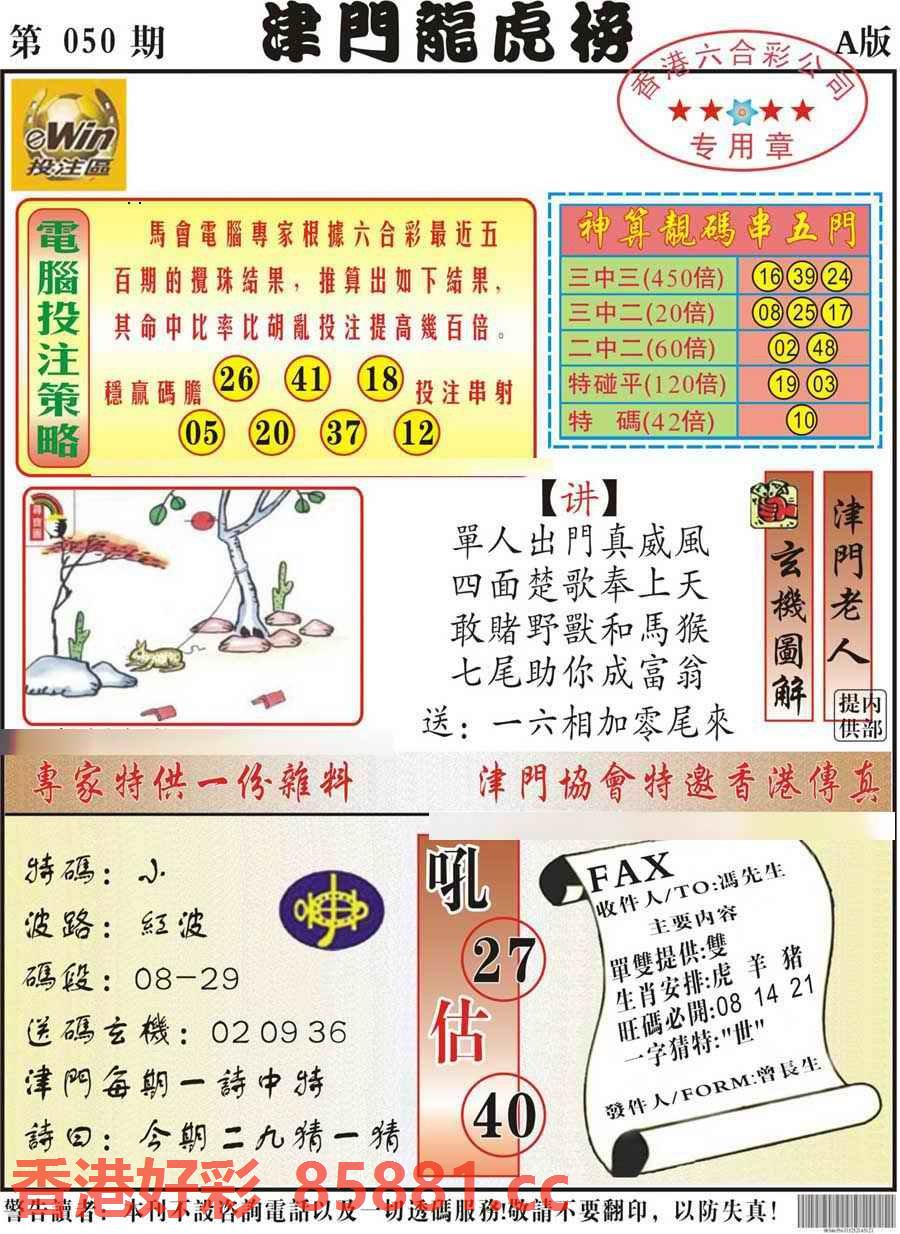 第 050 期
津門龍虎榜
A版
香港六合彩公司
专用章
eWin
投注區
電腦投注策略
馬會電腦專家根據六合彩最近五
百期的攪珠結果，推算出如下結果，
其命中比率比胡亂投注提高幾百倍。
穩贏碼膽 26 41 18 投注串射
05 20 37 12
神算靚碼串五門
三中三(450倍) 16 39 24
三中二(20倍) 08 25 17
二中二(60倍) 02 48
特碰平(120倍) 19 03
特 碼(42倍) 10
尋寶圖
【讲】
單人出門真威風
四面楚歌奉上天
敢賭野獸和馬猴
七尾助你成富翁
送：一六相加零尾來
玄機圖解
津門老人
内部提供
專家特供一份雜料
津門協會特邀香港傳真
特碼：小
波路：紅波
碼段：08-29
送碼玄機：02 09 36
津門每期一詩中特
詩曰：今期二九猜一猜
吼
27
估
40
FAX
收件人/TO:馮先生
主要内容
單雙提供:雙
生肖安排:虎 羊 豬
旺碼必開:08 14 21
一字猜特:"世"
發件人/FORM:曾長生
香港好彩 85881.cc
警告讀者：本刊不設咨詢電話以及一切透碼服務!敬請不要翻印，以防失真!